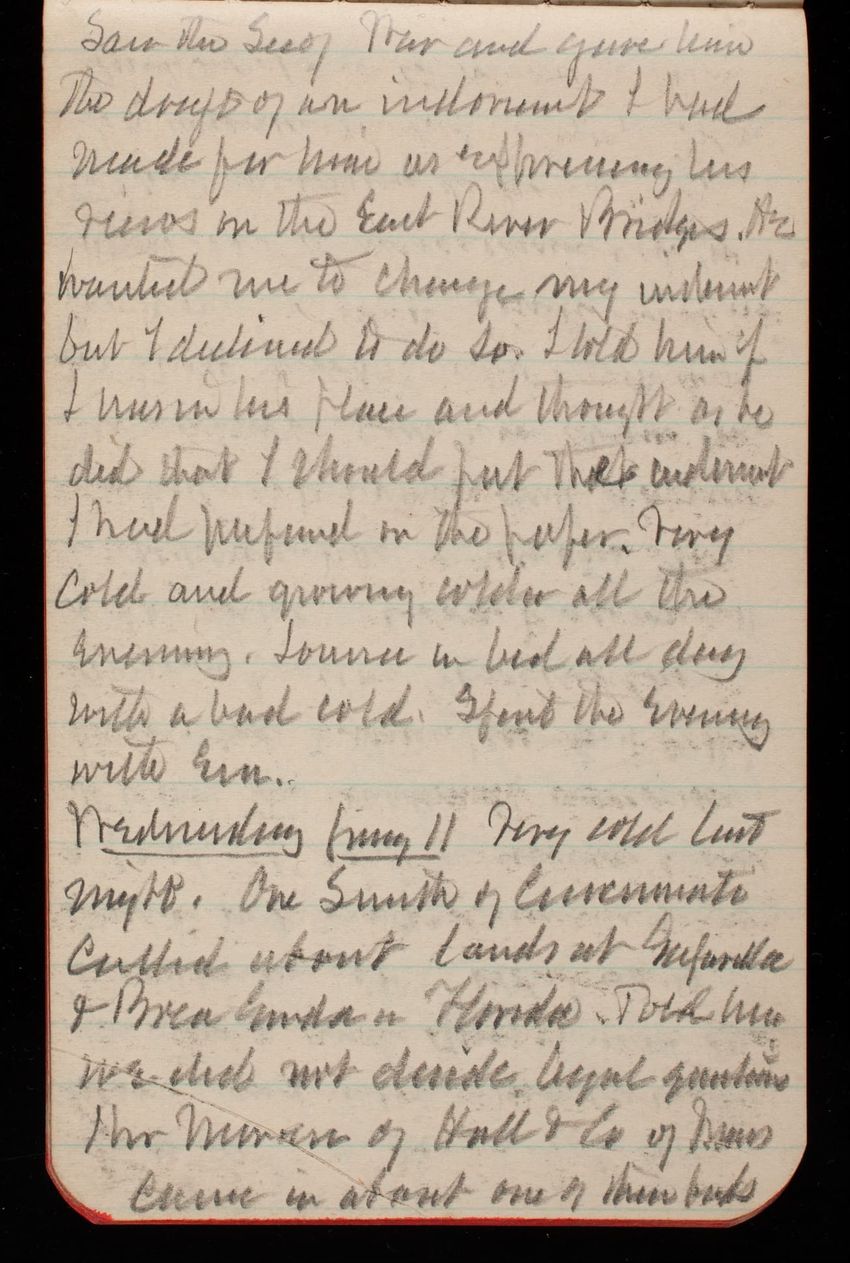 Saw the Sec of War and gave him
the draft of an indorsmt I had
made for him as expressing his
views on the East River Bridges. He
wanted me to change my indsmt
but I declined to do so. I told him if
I was in his place and thought as he
did that I should put the indsmt
I had prepared on the paper. Very
cold and growing colder all the
evening. Louise in bed all day
with a bad cold. Spent the Evening
with Em..
Wednesday 11 Very cold last
night. One Smith of Cincinnati
Called about lands at
& Boca Grande in Florida. Told him
we did not decide legal questions
Mr of Hall & Co of
Came in about one of their bids